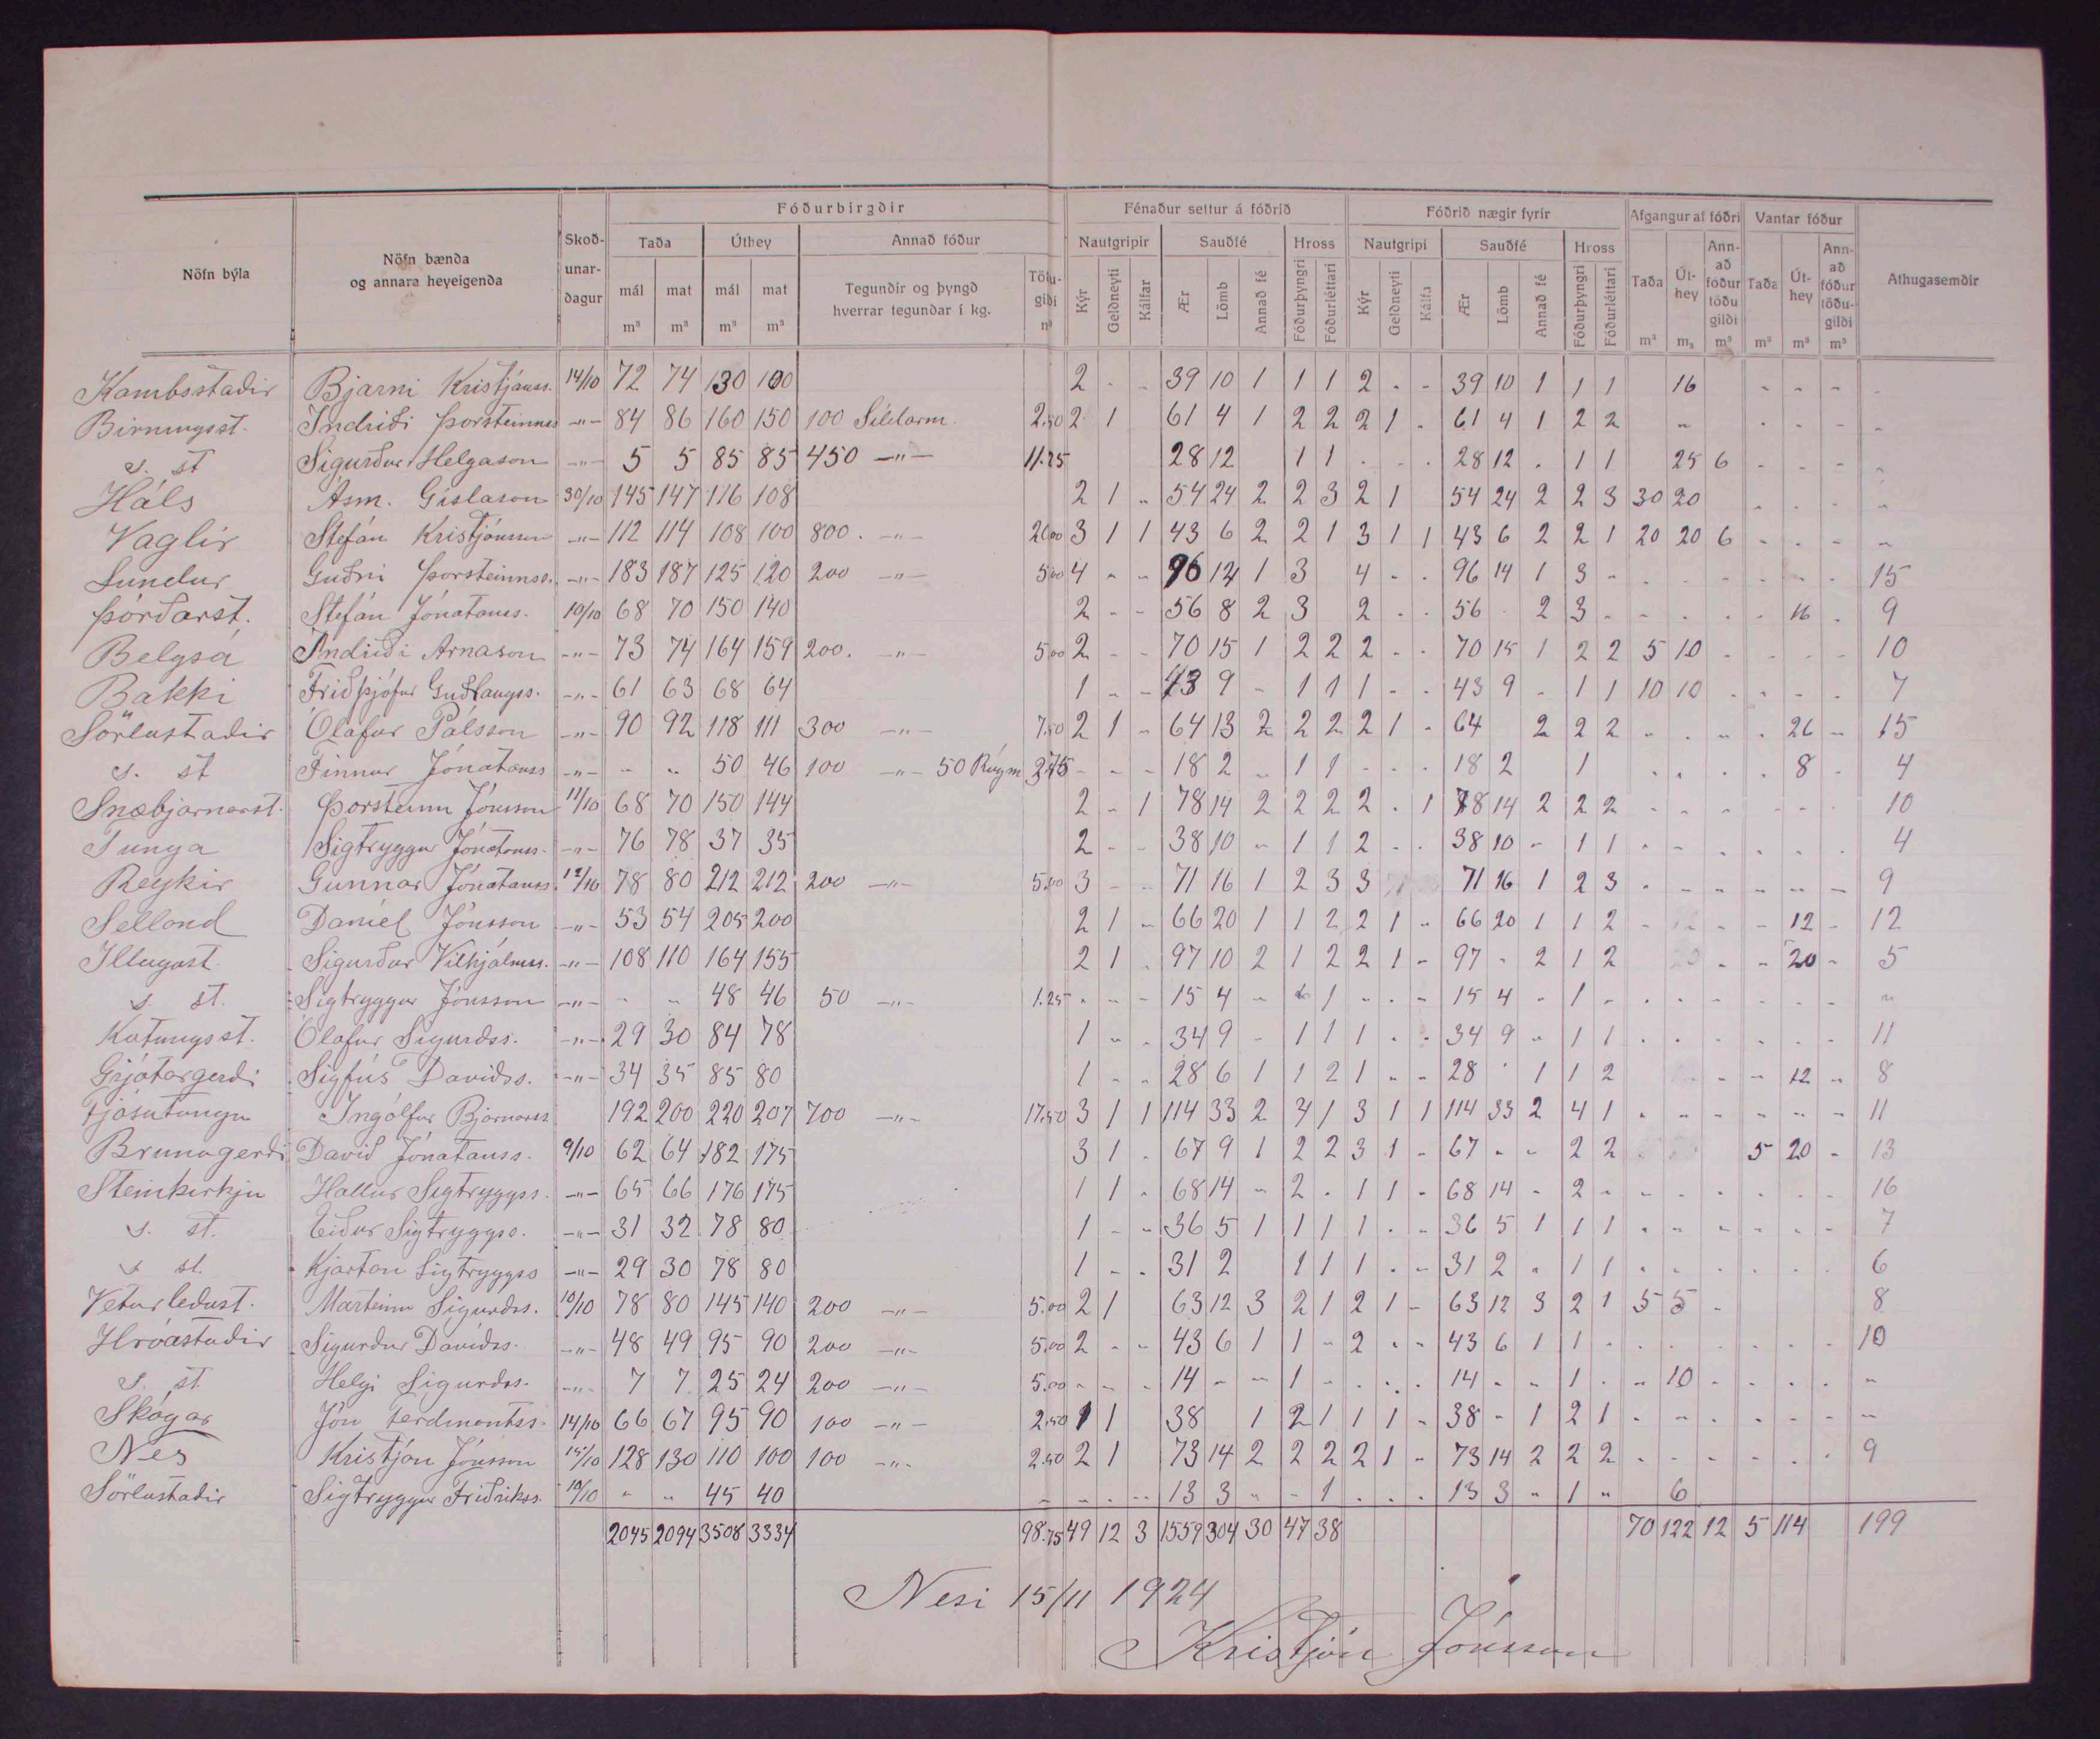 Fóðurbirgðir Fénaður settur á fóðrið Fóðrið nægir fyrir Afgangur af fóðri Vantar fóður
Nöfn býla Nöfn bænda og annara heyeigenda Skoð-unar-dagur Taða Úthey Annað fóður Nautgripir Sauðfé Hross Nautgripi Sauðfé Hross Taða Út-hey Ann-að fóður töðu gildi Taða Út-hey Ann-að fóður töðu-gildi Athugasemdir
mál mat mál mat Tegundir og þyngd hverrar tegundar í kg. Töðu-gildi Kýr Geldneyti Kálfar Ær Lömb Annað fé Fóðurþyngri Fóðurléttari Kýr Geldneyti Kálfa Ær Lömb Annað fé Fóðurþyngri Fóðurléttari
m³ m³ m³ m³ m³ m³ m³ m³ m³ m³ m³
Kambsstaðir Bjarni Kristjánss. 14/10 72 74 130 100 2 - - 39 10 1 1 1 2 - - 39 10 1 1 1 16 - - - -
Birningsst. Indriði Þorsteinnss -"- 84 86 160 150 100 Síldarm. 2.50 2 1 61 4 1 2 2 2 1 - 61 4 1 2 2 " - - - -
s. st Sigurður Helgason -"- 5 5 85 85 450 -"- 11.25 28 12 1 1 - - - 28 12 - 1 1 25 6 - - - -
Háls Ásm. Gíslason 30/10 145 147 116 108 2 1 " 54 24 2 2 3 2 1 54 24 2 2 3 30 20 - - - -
Vaglir Stefán Kristjónsson -"- 112 114 108 100 800. -"- 20.00 3 1 1 43 6 2 2 1 3 1 1 43 6 2 2 1 20 20 6 - - - -
Lundur Guðni Þorsteinnss. -"- 183 187 125 120 200 -"- 5.00 4 - - 96 14 1 3 4 - - 96 14 1 3 - - - - - - - 15
Þórðarst. Stefán Jónatans. 10/10 68 70 150 140 2 - - 56 8 2 3 2 - - 56 - 2 3 - - - - - 16 - 9
Belgsá Indriði Arnason -"- 73 74 164 159 200. -"- 5.00 2 - - 70 15 1 2 2 2 - - 70 15 1 2 2 5 10 - - - - 10
Bakki Friðþjófur Guðlaugss. -"- 61 63 68 64 1 - - 43 9 - 1 1 1 - - 43 9 - 1 1 10 10 - - - - 7
Sörlustaðir Ólafur Pálsson -"- 90 92 118 111 300 -"- 7.50 2 1 - 64 13 2 2 2 2 1 - 64 2 2 2 - - - - 26 - 15
s. st Finnur Jónatanss -"- - - 50 46 100 -"- 50 Rúgm 3.75 - - - 18 2 - 1 1 - - - 18 2 1 - - - - 8 - 4
Snæbjarnarst. Þorsteinn Jónsson 11/10 68 70 150 144 2 - 1 78 14 2 2 2 2 - 1 78 14 2 2 2 - - - - - - 10
Tunga Sigtryggur Jónatans. -"- 76 78 37 35 2 - - 38 10 - 1 1 2 - - 38 10 - 1 1 - - - - - - 4
Reykir Gunnar Jónatanss 12/10 78 80 212 212 200 -"- 5.00 3 - - 71 16 1 2 3 3 71 16 1 2 3 - - - - - - 9
Selland Daníel Jónsson -"- 53 54 205 200 2 1 - 66 20 1 1 2 2 1 - 66 20 1 1 2 - - - 12 - 12
Illugast. Sigurður Vilhjálmss. -"- 108 110 164 155 2 1 - 97 10 2 1 2 2 1 - 97 - 2 1 2 - - 20 - 5
s. st. Sigtryggur Jónsson -"- - - 48 46 50 -"- 1.25 - - - 15 4 - 1 - - - 15 4 - 1 - - - - - - - "
Kotungsst. Ólafur Sigurdss. -"- 29 30 84 78 1 - - 34 9 - 1 1 1 - - 34 9 - 1 1 - - - - - - 11
Grjótargerdi Sigfús Davidss. -"- 34 35 85 80 1 - - 28 6 1 1 2 1 - - 28 - 1 1 2 - - 12 - 8
Fjósatunga Ingólfur Bjarnarss 192 200 220 207 700 -"- 17.50 3 1 1 114 33 2 4 1 3 1 1 114 33 2 4 1 - - - - - - 11
Brunagerdi Davíð Jónatanss. 9/10 62 64 182 175 3 1 - 67 9 1 2 2 3 1 - 67 - - 2 2 5 20 - 13
Steinkirkju Hallur Sigtryggss. -"- 65 66 176 175 1 1 - 68 14 - 2 - 1 1 - 68 14 - 2 - - - - - - - 16
s. st. Eiður Sigtryggss. -"- 31 32 78 80 1 - - 36 5 1 1 1 1 - - 36 5 1 1 1 - - - - - - 7
s st. Kjartan Sigtryggss -"- 29 30 78 80 1 - - 31 2 1 1 1 - - 31 2 - 1 1 - - - - - - 6
Veturlidast. Marteinn Sigurdss. 10/10 78 80 145 140 200 -"- 5.00 2 1 63 12 3 2 1 2 1 - 63 12 3 2 1 5 5 - 8
Hróastadir Sigurdur Davídss. -"- 48 49 95 90 200 -"- 5.00 2 - - 43 6 1 1 - 2 - - 43 6 1 1 - - - - - - - 10
s. st. Helgi Sigurdss. -"- 7 7 25 24 200 -"- 5.00 - - - 14 - - 1 - - - - 14 - - 1 - - 10 - - - - "
Skógar Jón Ferdinantss. 14/10 66 67 95 90 100 -"- 2.50 1 1 38 1 2 1 1 1 - 38 - 1 2 1 - - - - - - -
Nes Kristján Jónsson 15/10 128 130 110 100 100 -"- 2.50 2 1 73 14 2 2 2 2 1 - 73 14 2 2 2 - - - - - - 9
Sörlustadir Sigtryggur Friðrikss. 10/10 " " 45 40 - - - - 13 3 - - 1 - - - 13 3 " 1 " 6
2045 2094 3508 3334 98.75 49 12 3 1559 304 30 47 38 70 122 12 5 114 199
Nesi 15/11 1924
Kristján Jónsson